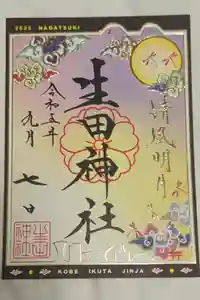 2023 NAGATSUKI
清風明月
生田神社
令和五年
九月
七日
KOBE IKUTA JINJA